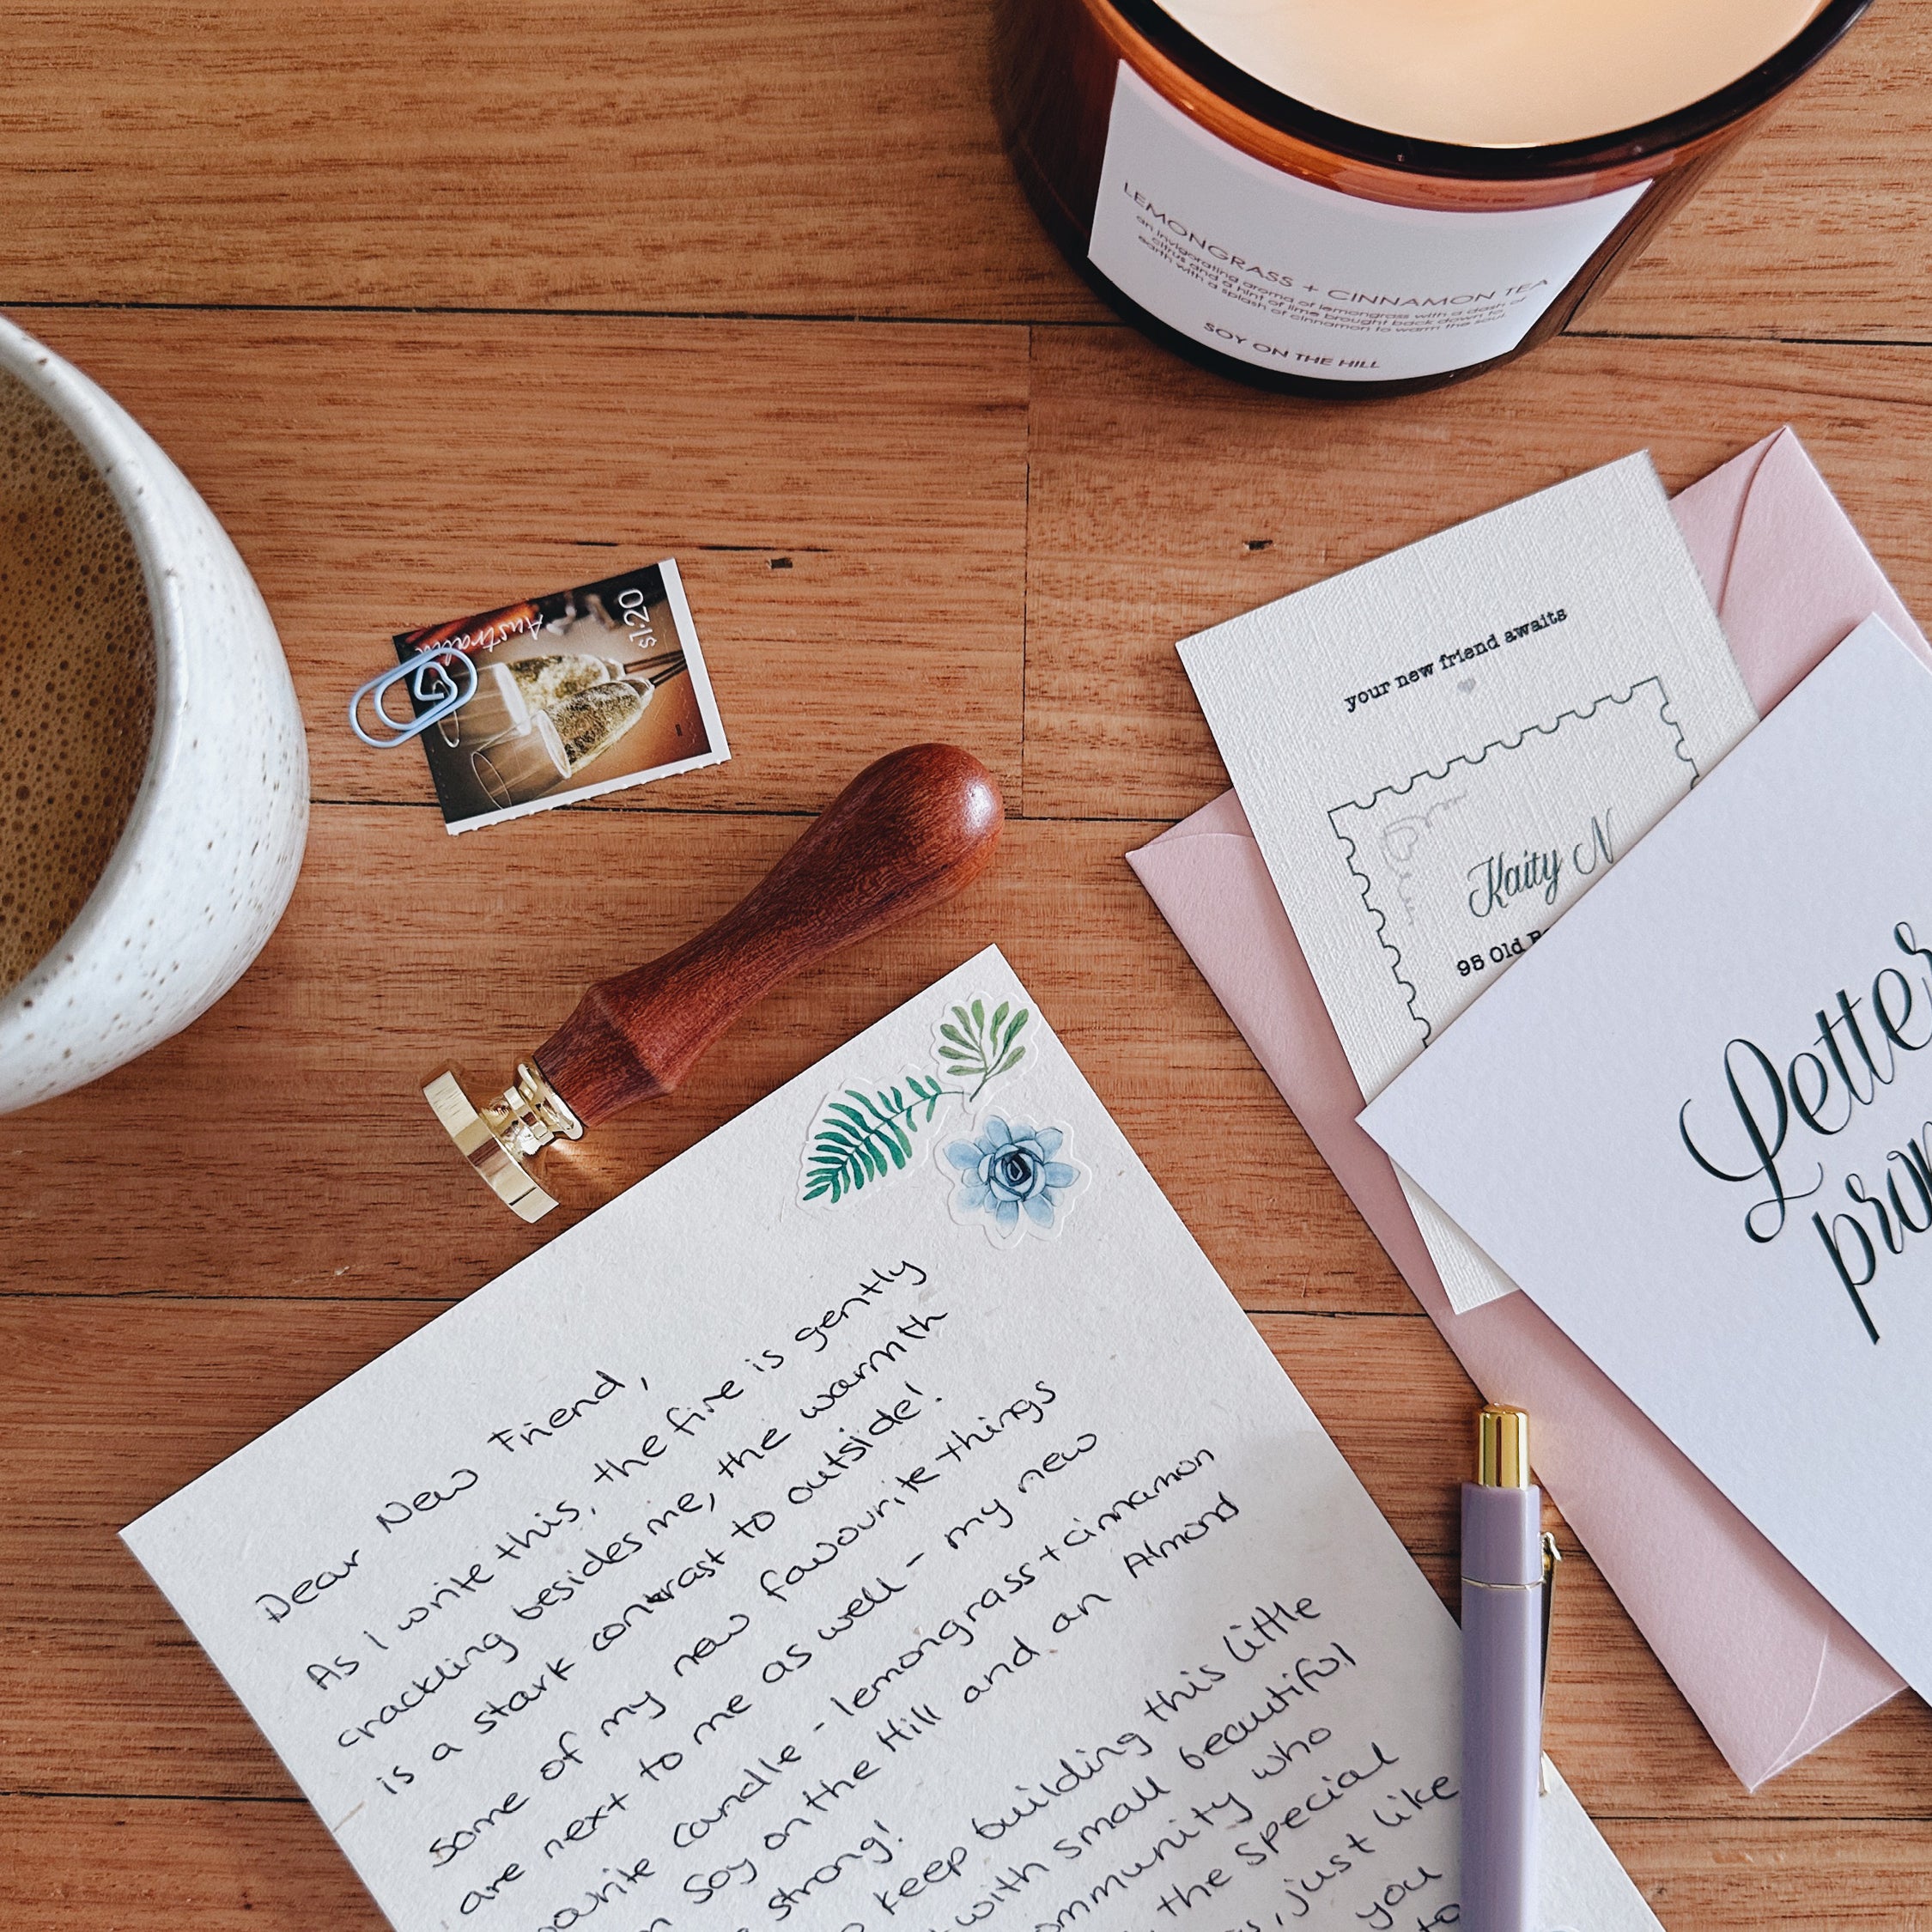 LEMONGRASS + CINNAMON TEA
an invigorating aroma of lemongrass with a dash of
citrus and a hint of lime brought back down to
earth with a splash of cinnamon to warm the soul
SOY ON THE HILL
Australia
$1.20
your new friend awaits
Dear
Kaity N
95 Old
Letter
pro
Dear New Friend,
As I write this, the fire is gently
crackling besides me, the warmth
is a stark contrast to outside!
Some of my new favourite things
are next to me as well - my new
candle - lemongrass + cinnamon
Soy on the Hill and an Almond
strong!
keep building this little
with small beautiful
who
the special
just like
you
to